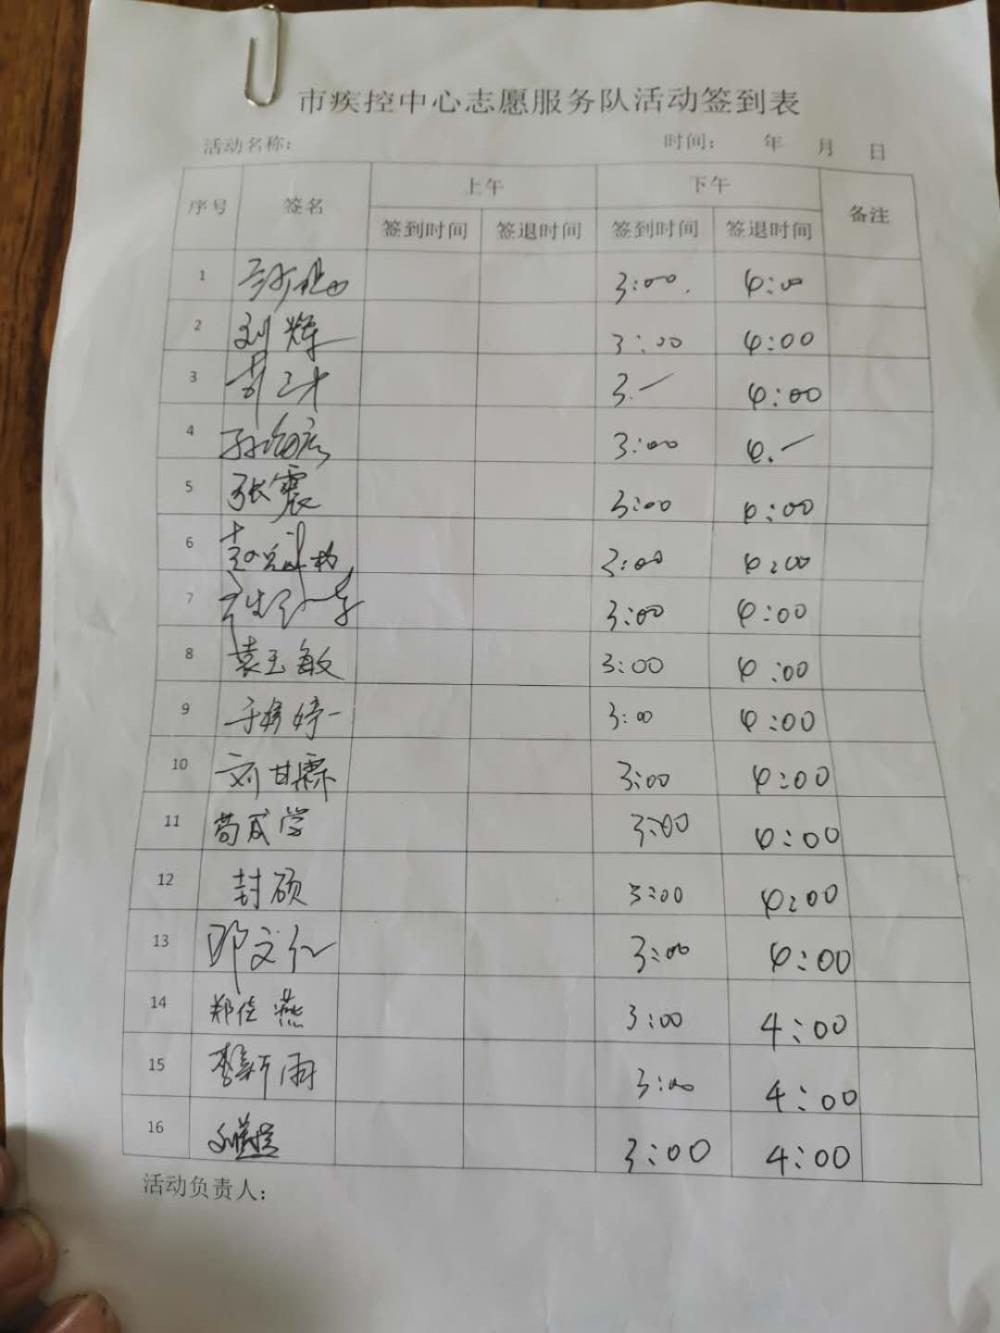 市疾控中心志愿服务队活动签到表
活动名称： 时间： 年 月 日
序号 签名 上午 下午 备注
签到时间 签退时间 签到时间 签退时间
1 3:00. 4:00
2 刘辉 3:00 4:00
3 3.一 4:00
4 3:00 4.一
5 张震 3:00 4:00
6 3:00 4:00
7 3:00 4:00
8 袁玉敏 3:00 4:00
9 3:00 4:00
10 刘甘霖 3:00 4:00
11 3:00 4:00
12 封硕 3:00 4:00
13 邓文仁 3:00 4:00
14 郑佳燕 3:00 4:00
15 李新雨 3:00 4:00
16 3:00 4:00
活动负责人：